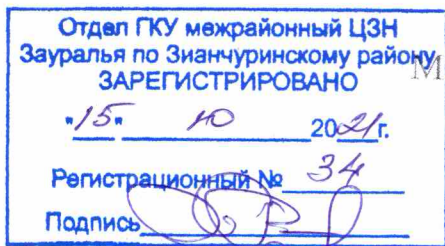 Отдел ГКУ межрайонный ЦЗН
Зауралья по Зианчуринскому району
ЗАРЕГИСТРИРОВАНО
М
"15" 2021г.
Регистрационный № 34
Подпись